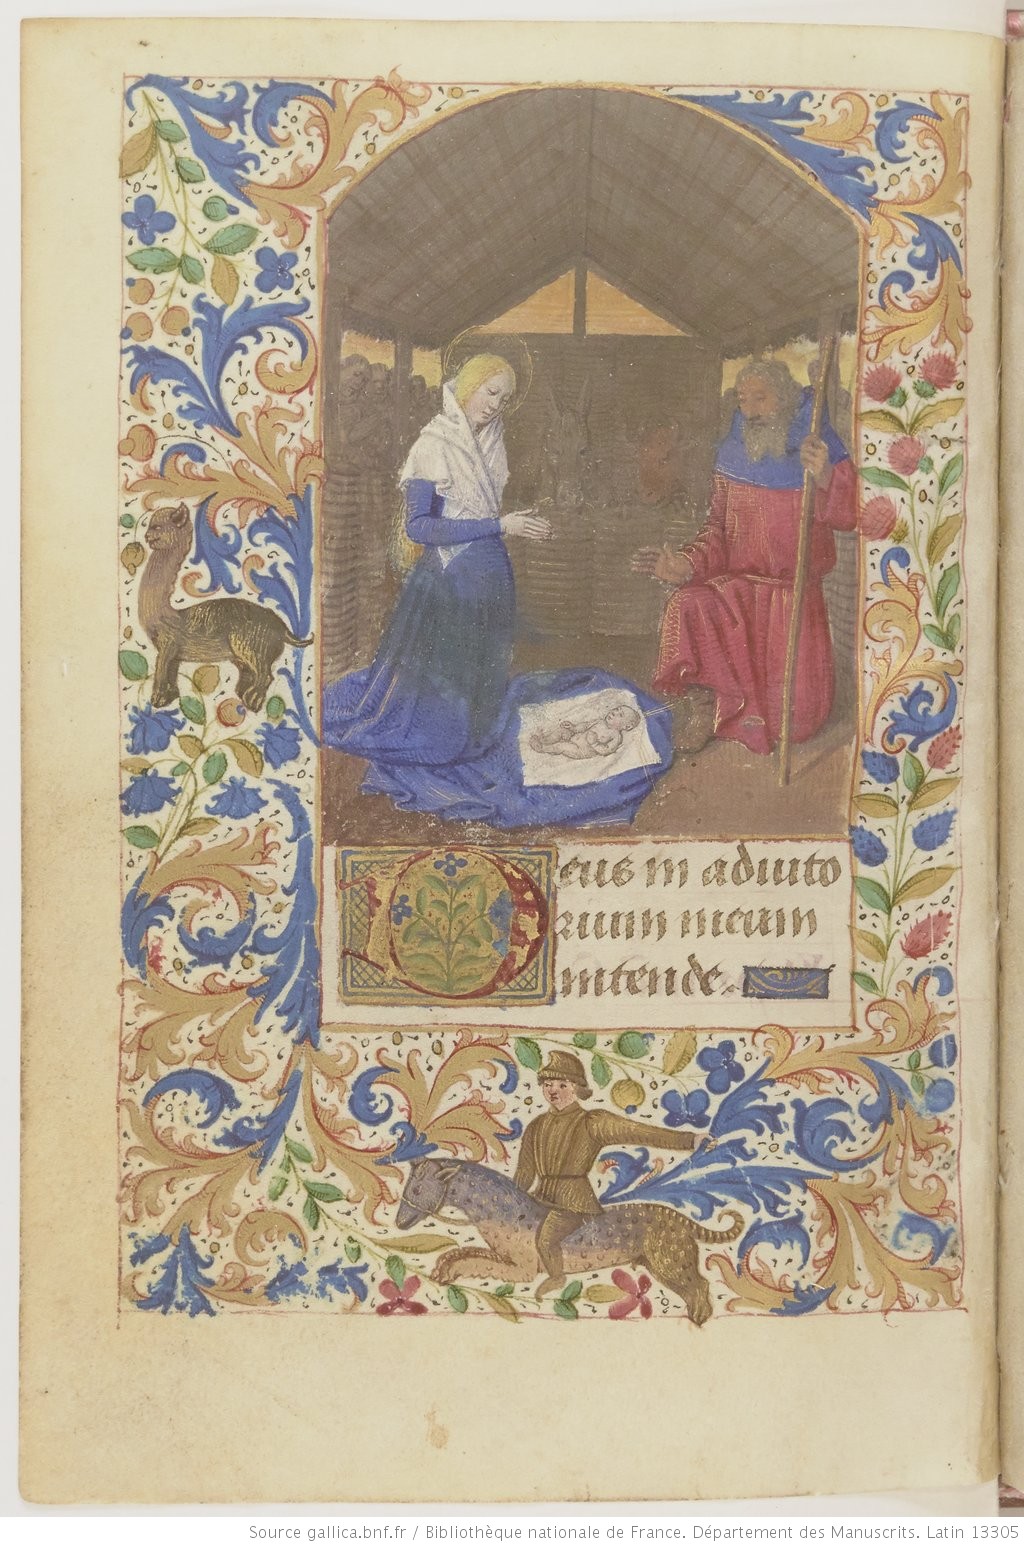 Deus in adiuto
rium meum
intende.
Source gallica.bnf.fr / Bibliothèque nationale de France. Département des Manuscrits. Latin 13305